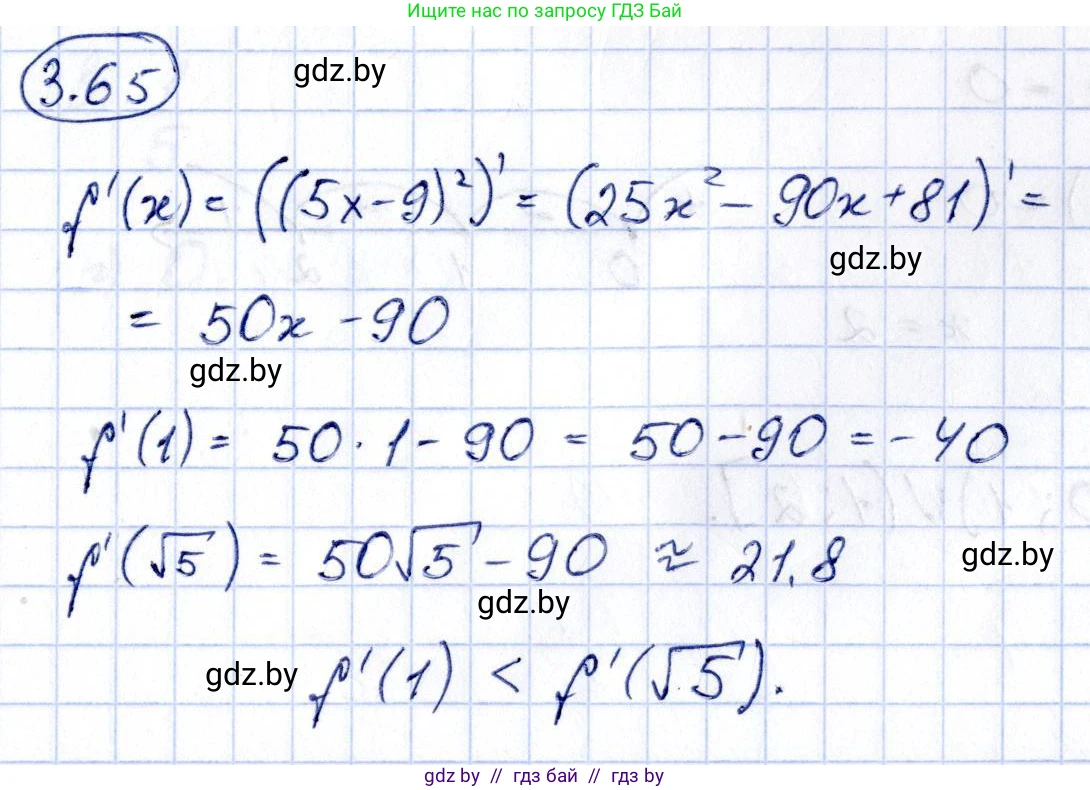 Ищите нас по запросу ГДЗ Бай
3.65
gdz.by
f'(x) = ((5x-9)²)' = (25x² - 90x + 81)' =
gdz.by
= 50x - 90
gdz.by
f'(1) = 50 · 1 - 90 = 50 - 90 = - 40
f'(√5) = 50√5 - 90 ≈ 21,8
gdz.by
gdz.by
gdz.by
f'(1) < f'(√5).
gdz.by // гдз бай // гдз by